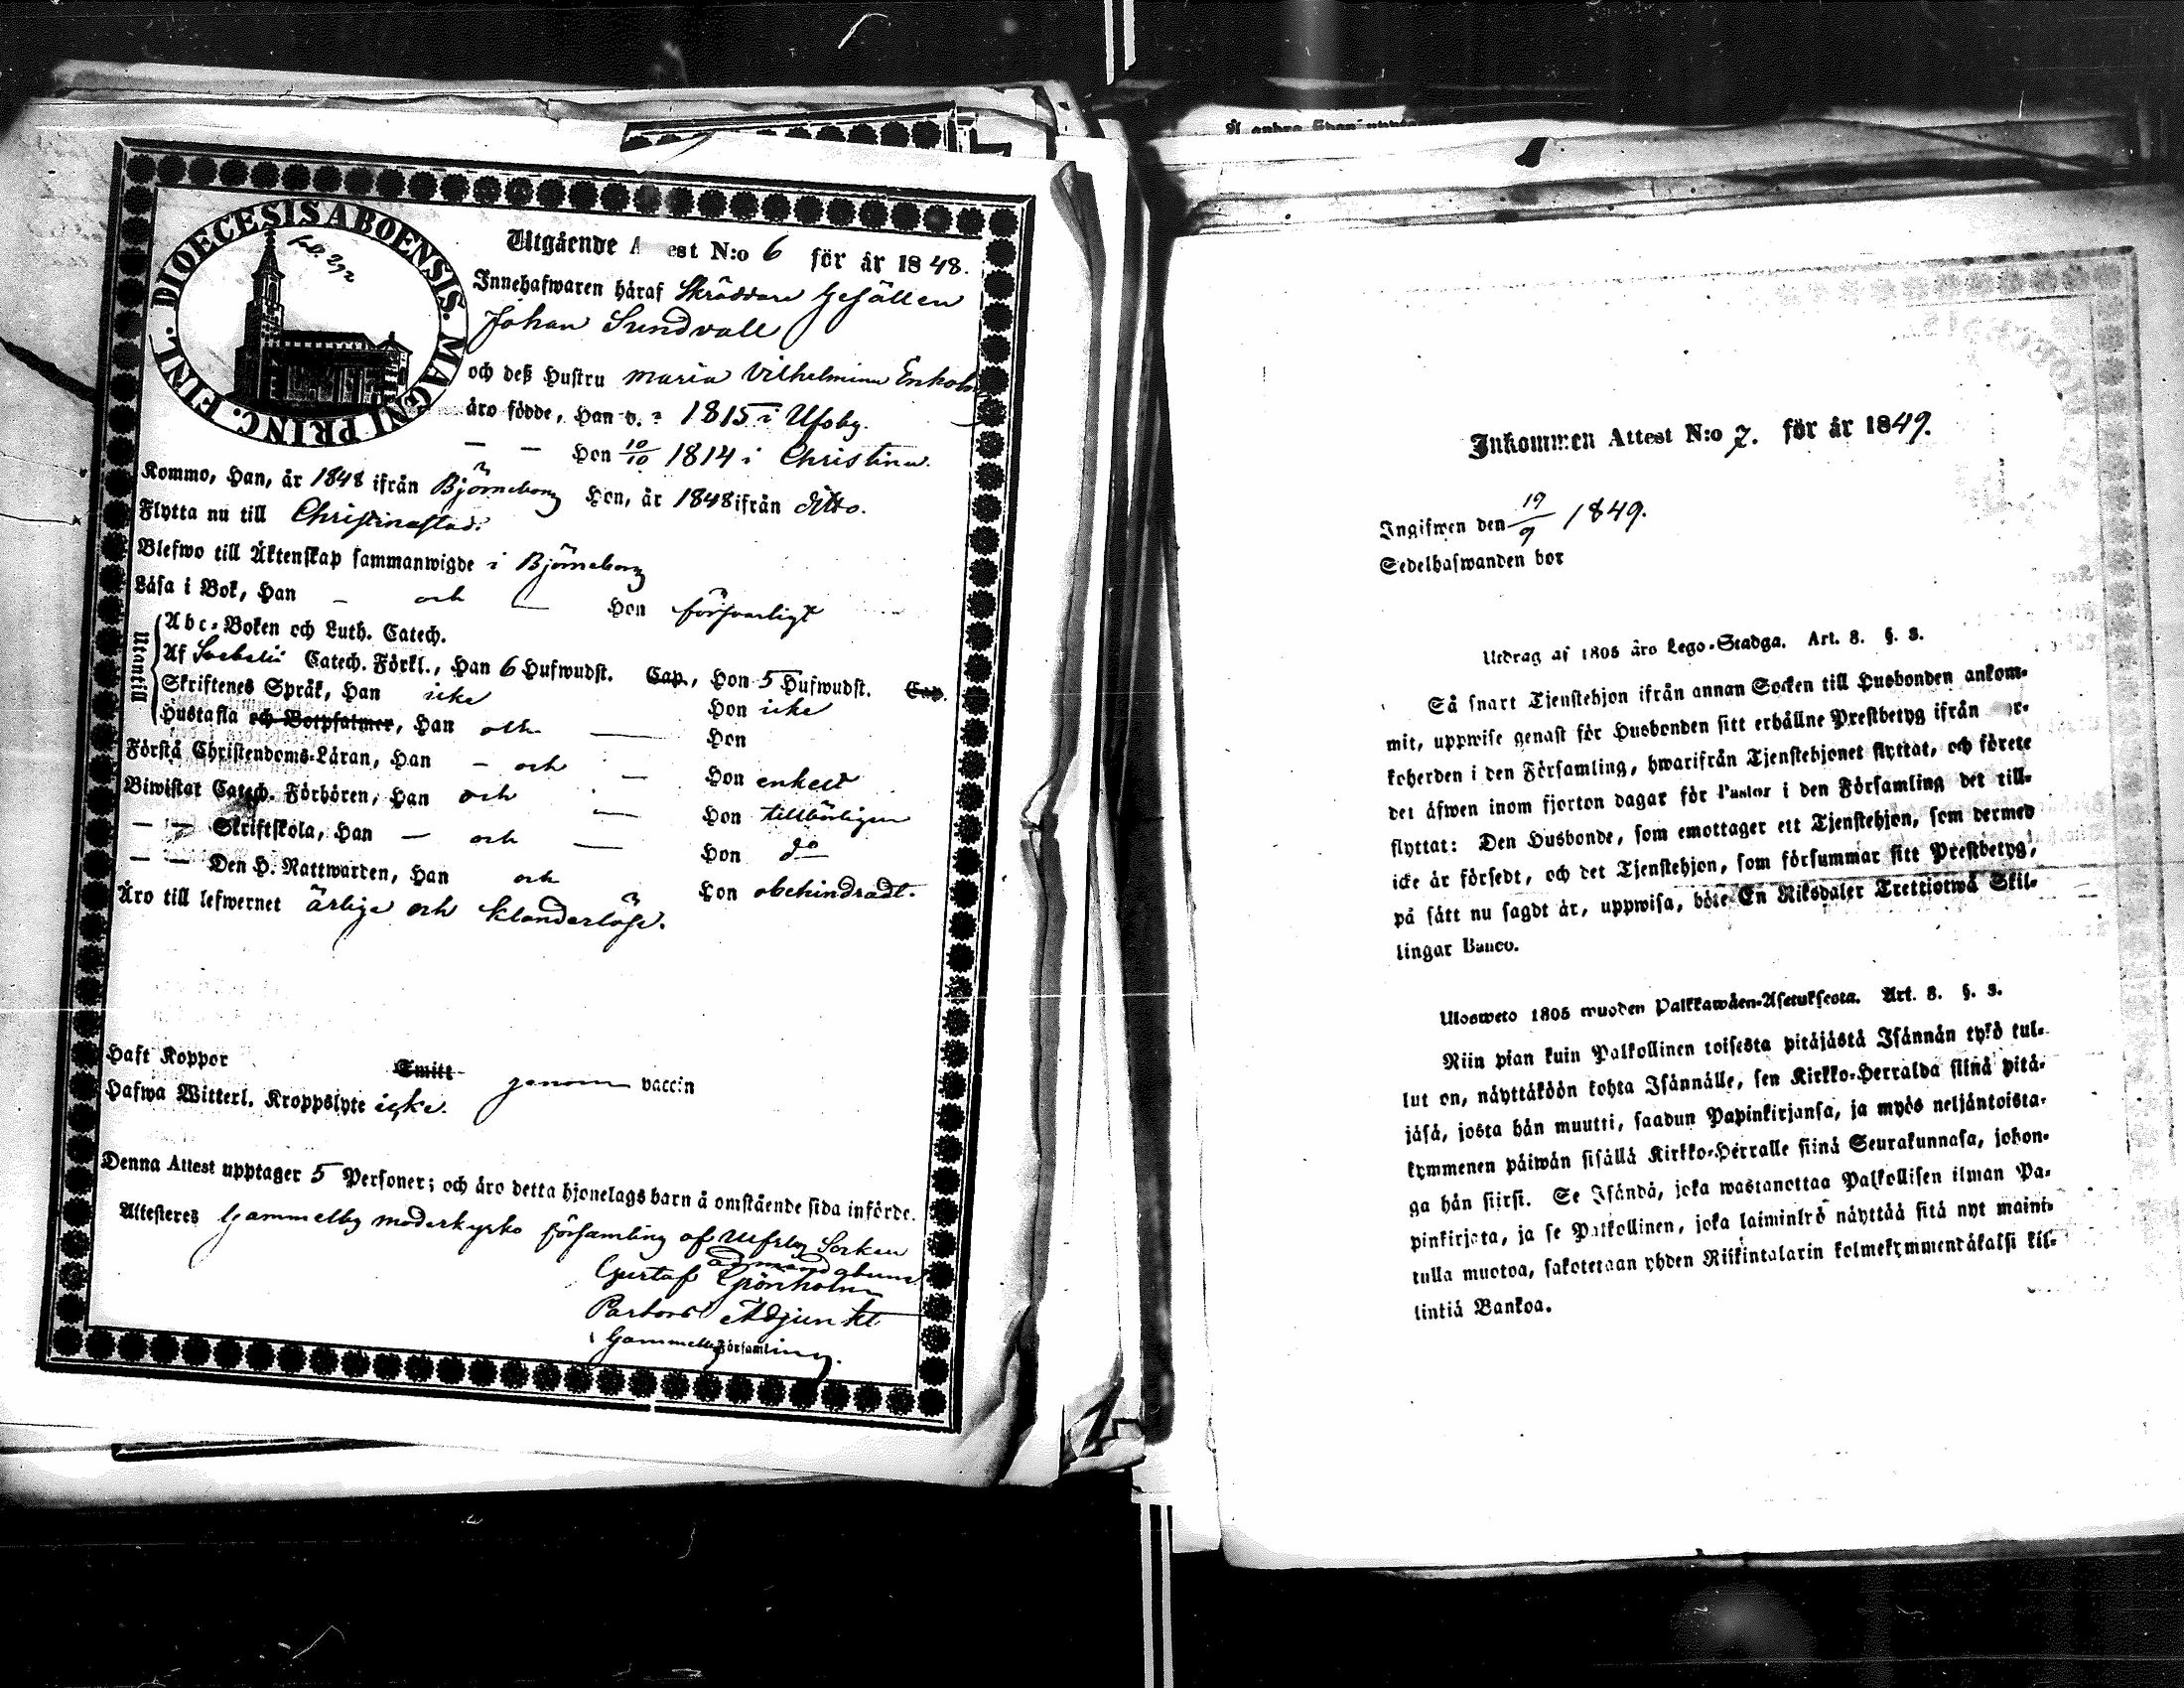 DIOECESIS ABOENSIS. MAGNI PRINC. FINL.
Utgående A est N:o 6 för år 1848.
Innehafwaren häraf Skräddare Gesällen
Johan Sundvall
och deß Hustru Maria Vilhelmina
äro födde, Han d. 1815 i Ulfsby.
— — Hon 10/10 1814 i Christina.
Kommo, Han, år 1848 ifrån Björneborg Hon, år 1848 ifrån ditto.
Flytta nu till Christinastad.
Blefwo till Äktenskap sammanwigde i Björneborg
Läsa i Bok, Han — och — Hon försvarligt
Utantill
Abc-Boken och Luth. Catech.
Af Catech. Förkl., Han 6 Hufwudst. Cap., Hon 5 Hufwudst. Cap.
Skriftenes Språk, Han icke Hon icke
Hustafla och Botpsalmer, Han och — Hon
Förstå Christendoms-Läran, Han — och — Hon enkelt
Biwistat Catech. Förhören, Han och — Hon tillbörligen
— — Skriftskola, Han — och — Hon do
— — Den H. Nattwarden, Han och Hon obehindradt.
Äro till lefwernet ärliga och klanderlöse.
Haft Koppor Smitt genom vaccin
Hafwa Witterl. Kroppslyte icke.
Denna Attest upptager 5 Personer; och äro detta hjonelags barn å omstående sida införde.
Attesteras Gammelby moderkyrko församling af Ulfsby Socken
Gustaf Grönholm
Pastors Adjunkt
i Gammelby Församling.
Inkommen Attest N:o 7. för år 1849.
Ingifwen den 19/9 1849.
Sedelhafwanden bor
Utdrag af 1805 års Lego-Stadga. Art. 8. §. 3.
Så snart Tjenstehjon ifrån annan Socken till Husbonden ankom-
mit, uppwise genast för Husbonden sitt erhållne Prestbetyg ifrån r-
koherden i den Församling, hwarifrån Tjenstehjonet flyttat, och förete
det äfwen inom fjorton dagar för Pastor i den Församling det till-
flyttat: Den Husbonde, som emottager ett Tjenstehjon, som dermed
icke är försedt, och det Tjenstehjon, som försummar sitt Prestbetyg,
på sätt nu sagdt är, uppwisa, böte En Riksdaler Trettiotwå Skil-
lingar Banco.
Ulosweto 1805 wuoden Palkkawäen-Asetuksesta. Art. 8. §. 3.
Niin pian kuin Palkollinen toisesta pitäjästä Isännän tykö tul-
lut on, näyttäköön kohta Isännälle, sen Kirkko-Herralda siinä pitä-
jäsä, josta hän muutti, saadun Papinkirjansa, ja myös neljäntoista-
kymmenen päiwän sisällä Kirkko-Herralle siinä Seurakunnasa, johon-
ga hän siirsi. Se Isändä, joka wastanottaa Palkollisen ilman Pa-
pinkirjata, ja se Palkollinen, joka laiminlyö näyttää sitä nyt maini-
tulla muotoa, sakotetaan yhden Riikintalarin kolmekymmentäkaksi kil-
lintiä Bankoa.